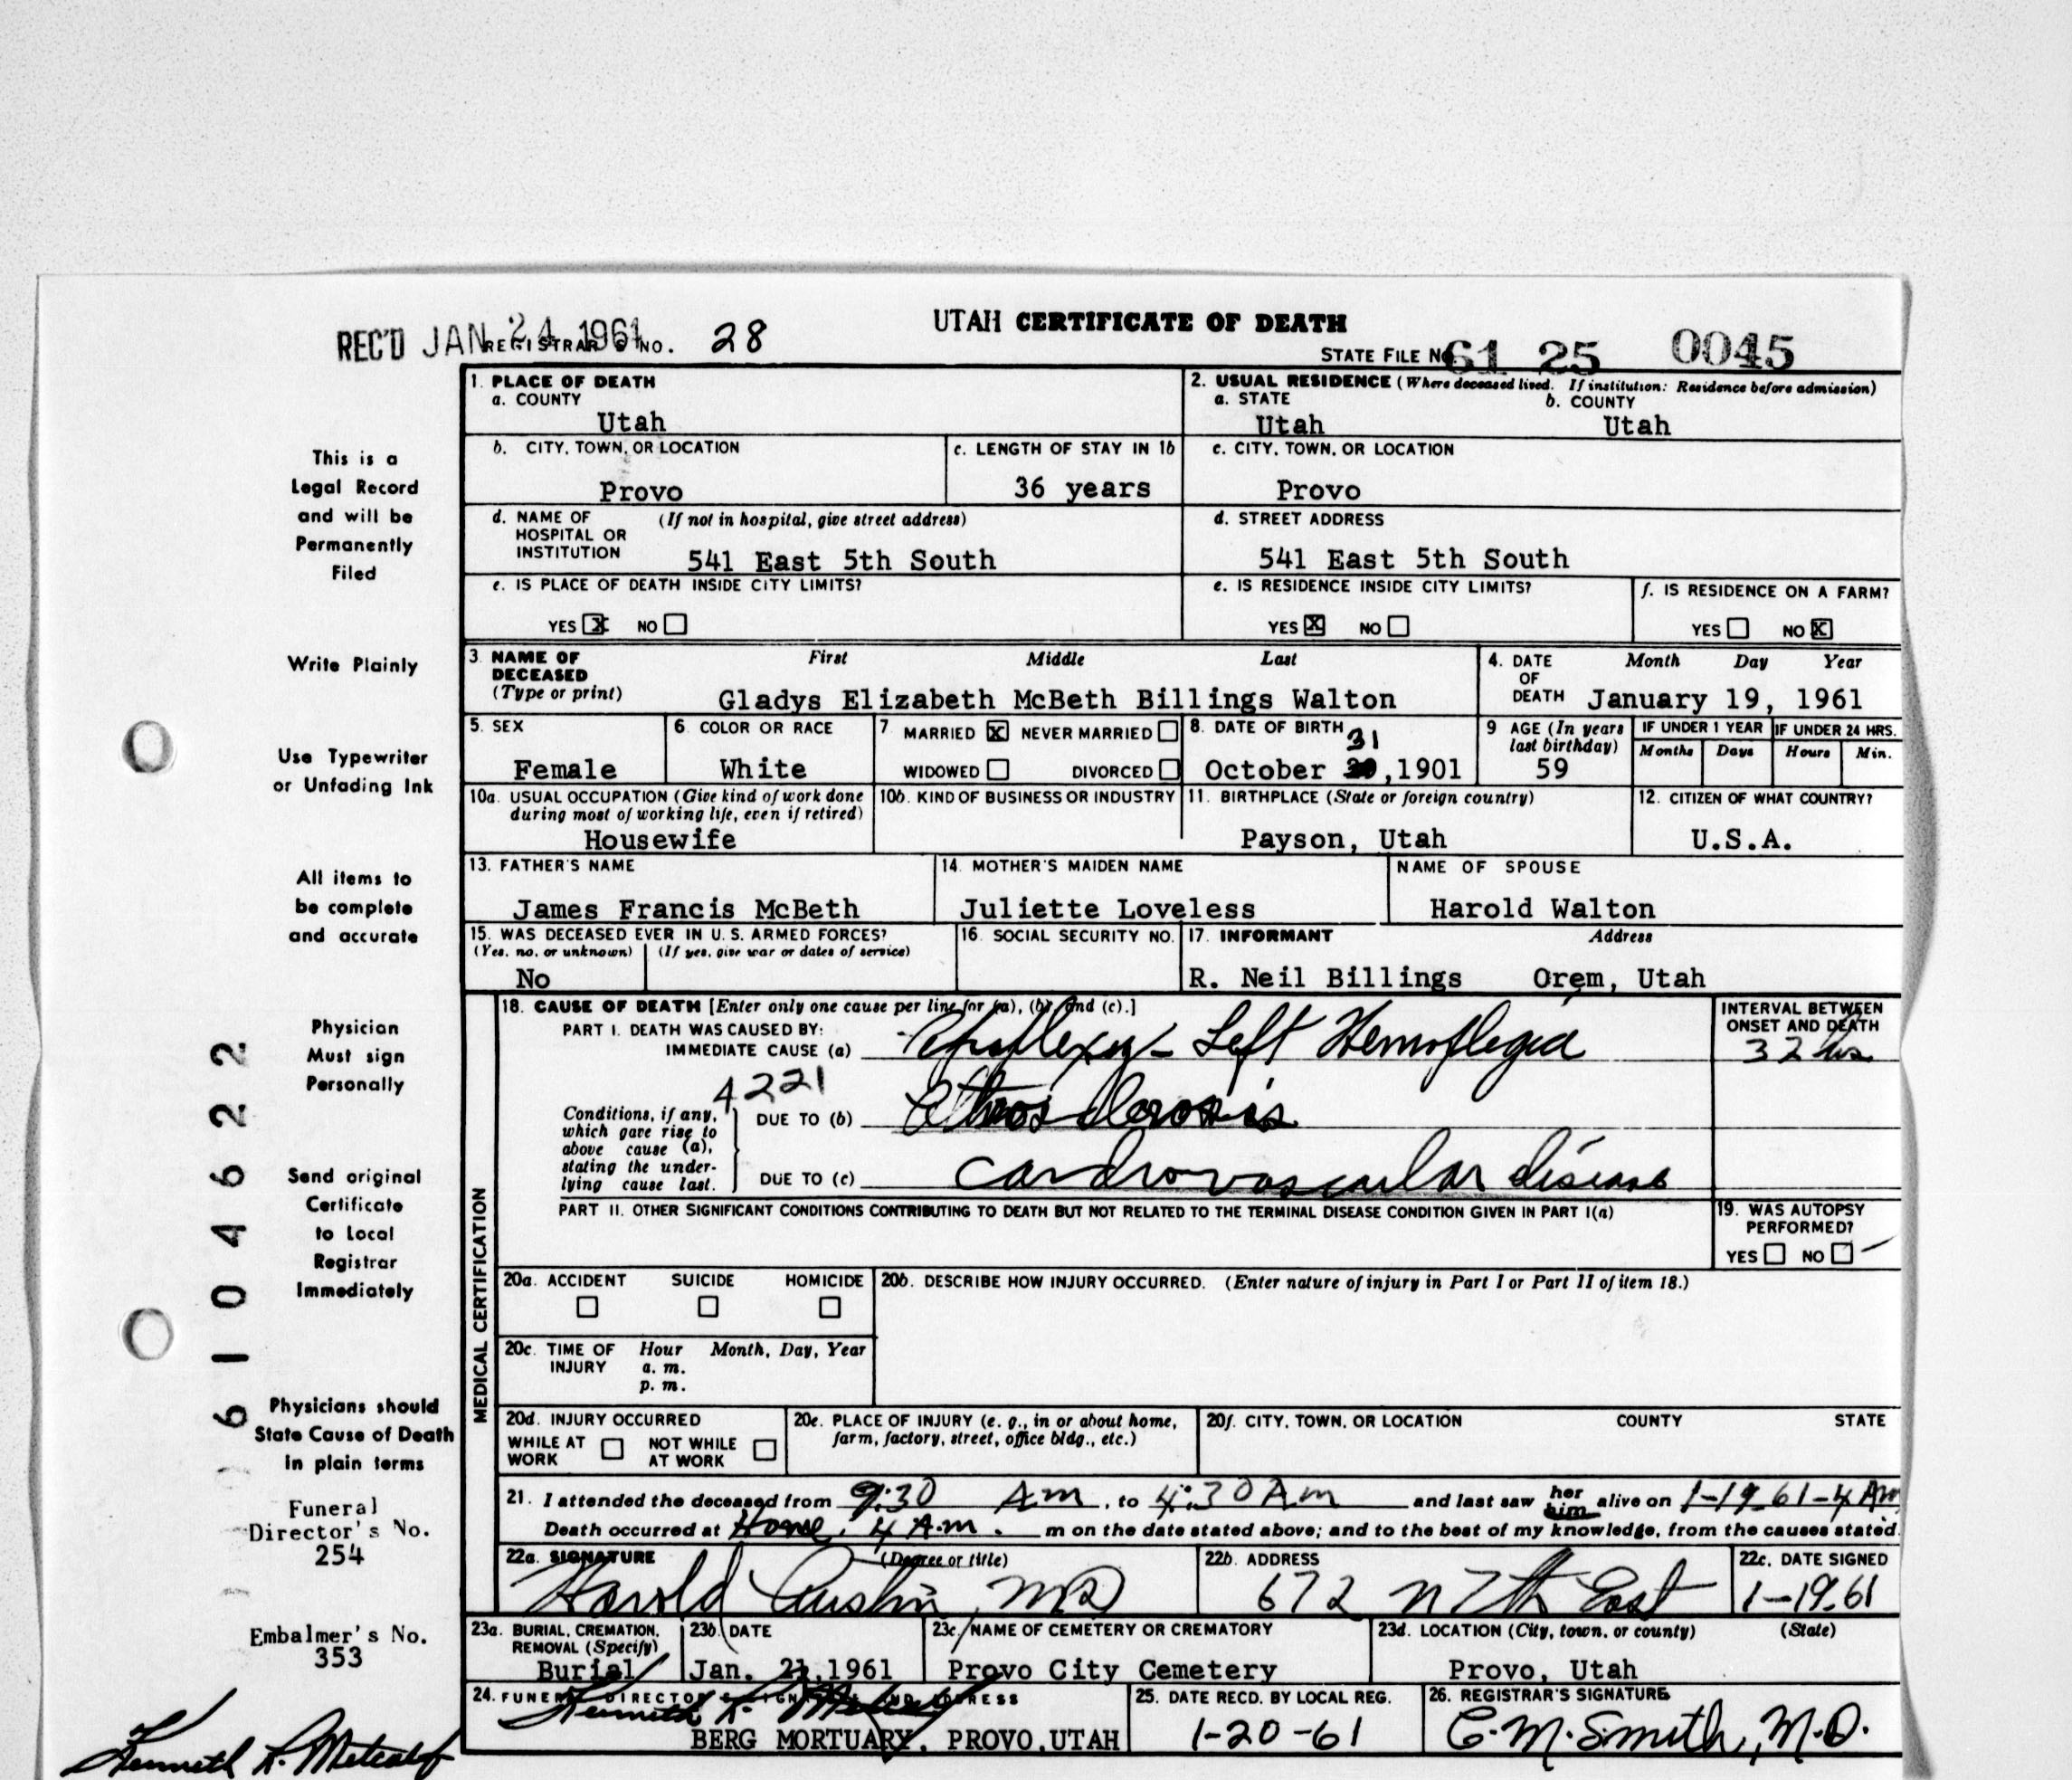 UTAH CERTIFICATE OF DEATH
REC'D JAN 24 1961 REGISTRAR'S NO. 28
STATE FILE No 61 25 0045
1. PLACE OF DEATH
a. COUNTY
Utah
2. USUAL RESIDENCE (Where deceased lived. If institution: Residence before admission)
a. STATE b. COUNTY
Utah Utah
b. CITY, TOWN, OR LOCATION
Provo
c. LENGTH OF STAY IN 1b
36 years
c. CITY, TOWN, OR LOCATION
Provo
d. NAME OF (If not in hospital, give street address)
HOSPITAL OR
INSTITUTION 541 East 5th South
d. STREET ADDRESS
541 East 5th South
e. IS PLACE OF DEATH INSIDE CITY LIMITS?
YES X NO
e. IS RESIDENCE INSIDE CITY LIMITS?
YES X NO
f. IS RESIDENCE ON A FARM?
YES NO X
3. NAME OF First Middle Last
DECEASED
(Type or print) Gladys Elizabeth McBeth Billings Walton
4. DATE Month Day Year
OF
DEATH January 19, 1961
5. SEX
Female
6. COLOR OR RACE
White
7. MARRIED X NEVER MARRIED
WIDOWED DIVORCED
8. DATE OF BIRTH
31
October ,1901
9 AGE (In years
last birthday)
59
IF UNDER 1 YEAR IF UNDER 24 HRS.
Months Days Hours Min.
10a. USUAL OCCUPATION (Give kind of work done
during most of working life, even if retired)
Housewife
10b. KIND OF BUSINESS OR INDUSTRY
11. BIRTHPLACE (State or foreign country)
Payson, Utah
12. CITIZEN OF WHAT COUNTRY?
U.S.A.
13. FATHER'S NAME
James Francis McBeth
14. MOTHER'S MAIDEN NAME
Juliette Loveless
NAME OF SPOUSE
Harold Walton
15. WAS DECEASED EVER IN U.S. ARMED FORCES?
(Yes, no, or unknown) (If yes, give war or dates of service)
No
16. SOCIAL SECURITY NO.
17. INFORMANT Address
R. Neil Billings Orem, Utah
MEDICAL CERTIFICATION
18. CAUSE OF DEATH [Enter only one cause per line for (a), (b), and (c).]
PART I. DEATH WAS CAUSED BY:
IMMEDIATE CAUSE (a) Apoplexy - Left Hemiplegia
INTERVAL BETWEEN
ONSET AND DEATH
32 hrs
4221
Conditions, if any,
which gave rise to
above cause (a),
stating the under-
lying cause last.
DUE TO (b)
DUE TO (c) cardiovascular disease
PART II. OTHER SIGNIFICANT CONDITIONS CONTRIBUTING TO DEATH BUT NOT RELATED TO THE TERMINAL DISEASE CONDITION GIVEN IN PART I(a)
19. WAS AUTOPSY
PERFORMED?
YES NO
20a. ACCIDENT SUICIDE HOMICIDE
20b. DESCRIBE HOW INJURY OCCURRED. (Enter nature of injury in Part I or Part II of item 18.)
20c. TIME OF Hour Month, Day, Year
INJURY a. m.
p. m.
20d. INJURY OCCURRED
WHILE AT NOT WHILE
WORK AT WORK
20e. PLACE OF INJURY (e. g., in or about home,
farm, factory, street, office bldg., etc.)
20f. CITY, TOWN, OR LOCATION COUNTY STATE
21. I attended the deceased from 9:30 Am, to 4:30 Am and last saw her him alive on 1-19-61-4 Am
Death occurred at Home, 4 A.m. m on the date stated above; and to the best of my knowledge, from the causes stated.
22a. SIGNATURE (Degree or title)
Harold Austin, MD
22b. ADDRESS
672 N 7th East
22c. DATE SIGNED
1-19-61
23a. BURIAL, CREMATION,
REMOVAL (Specify)
Burial
23b. DATE
Jan. 21,1961
23c. NAME OF CEMETERY OR CREMATORY
Provo City Cemetery
23d. LOCATION (City, town, or county) (State)
Provo, Utah
24. FUNERAL DIRECTOR'S SIGNATURE AND ADDRESS
BERG MORTUARY, PROVO,UTAH
25. DATE RECD. BY LOCAL REG.
1-20-61
26. REGISTRAR'S SIGNATURE
C.M. Smith, M.D.
This is a
Legal Record
and will be
Permanently
Filed
Write Plainly
Use Typewriter
or Unfading Ink
All items to
be complete
and accurate
Physician
Must sign
Personally
Send original
Certificate
to Local
Registrar
Immediately
Physicians should
State Cause of Death
in plain terms
Funeral
Director's No.
254
Embalmer's No.
353
Kenneth R. Metcalf
6 1 0 4 6 2 2